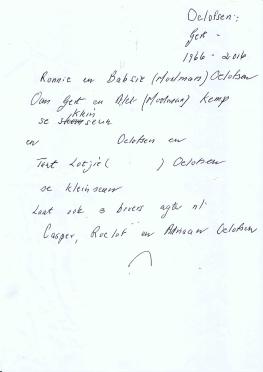 Oelofsen:
Gert -
1966 - 2016
Ronnie en Babsie (Mostmans) Oelofsen
Oom Gert en Alet (Mostmans) Kemp
se kleinseun
en Oelofsen en
Tant Lotjie ( ) Oelofsen
se kleinseun
Laat ook 3 broers agter nl:
Casper, Roelof en Adriaan Oelofsen